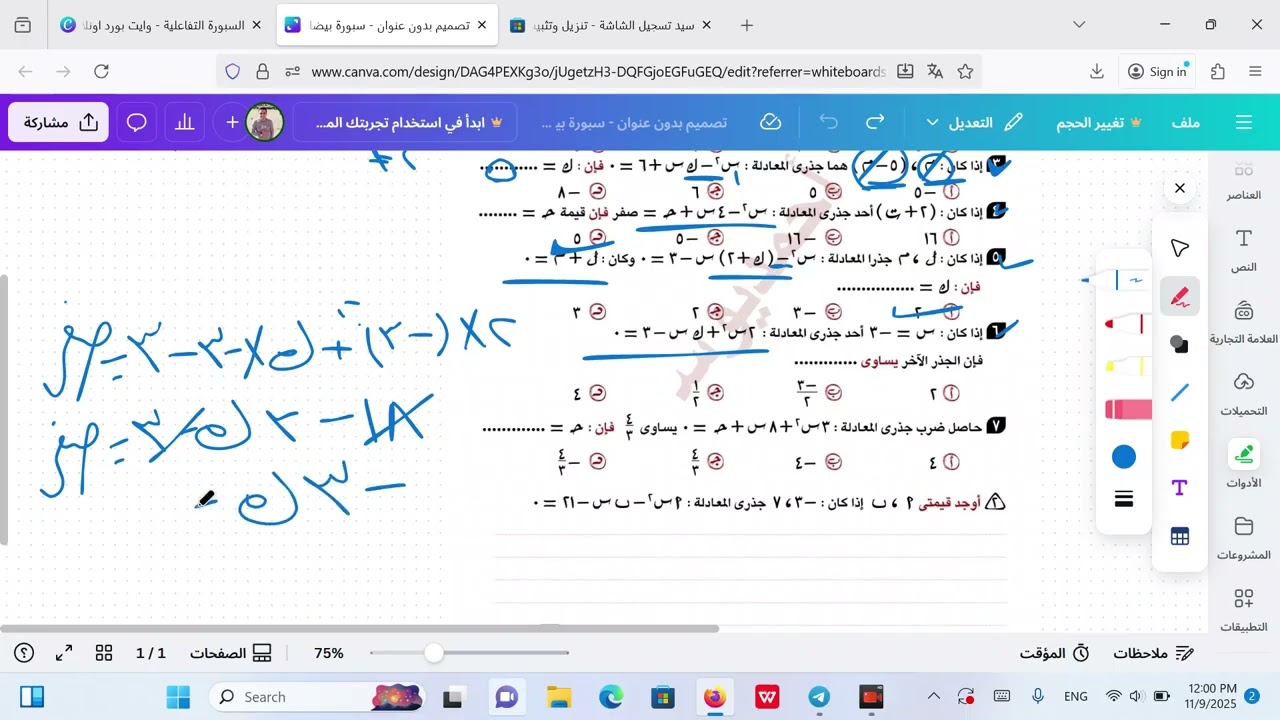 السبورة التفاعلية - وايت بورد اونلا
تصميم بدون عنوان - سبورة بيضا
سيد تسجيل الشاشة - تنزيل وتثبي
www.canva.com/design/DAG4PEXKg3o/jUgetzH3-DQFGjoEGFuGEQ/edit?referrer=whiteboards
Sign in
ملف
تغيير الحجم
التعديل
تصميم بدون عنوان - سبورة بيـ ...
ابدأ في استخدام تجربتك المـ...
مشاركة
٣ إذا كان : م ، (٥ – م) هما جذرى المعادلة : س٢ – ك س + ٦ = ٠ فإن : ك = ............
أ –٥ ب ٥ ج ٦ د –٨
٤ إذا كان : (٢ + ت) أحد جذرى المعادلة : س٢ – ٤ س + حـ = صفر فإن قيمة حـ = ........
أ ١٦ ب –١٦ ج –٥ د ٥
٥ إذا كان : ل ، م جذرا المعادلة : س٢ – (ك + ٢) س – ٣ = ٠ وكان : ل + م = ٠
فإن : ك = ................
أ –٢ ب –٣ ج ٢ د ٣
٦ إذا كان : س = –٣ أحد جذرى المعادلة : ٢س٢ + ك س – ٣ = ٠
فإن الجذر الآخر يساوى .............
أ ٢ ب –٣/٢ ج ١/٢ د ٤
٧ حاصل ضرب جذرى المعادلة : ٣س٢ + ٨ س + حـ = ٠ يساوى ٤/٣ فإن : حـ = .............
أ ٤ ب –٤ ج ٤/٣ د –٤/٣
٢ أوجد قيمتى ٩ ، ب إذا كان : –٣ ، ٧ جذرى المعادلة : ٩س٢ – ب س – ٢١ = ٠
٢×(–٣)٢ + ك×–٣ – ٣ = صفر
١٨ – ٣ك – ٣ = صفر
–٣ك =
العناصر
النص
العلامة التجارية
التحميلات
الأدوات
المشروعات
التطبيقات
ملاحظات
المؤقت
75%
الصفحات
1 / 1
Search
ENG
12:00 PM
11/9/2025
2